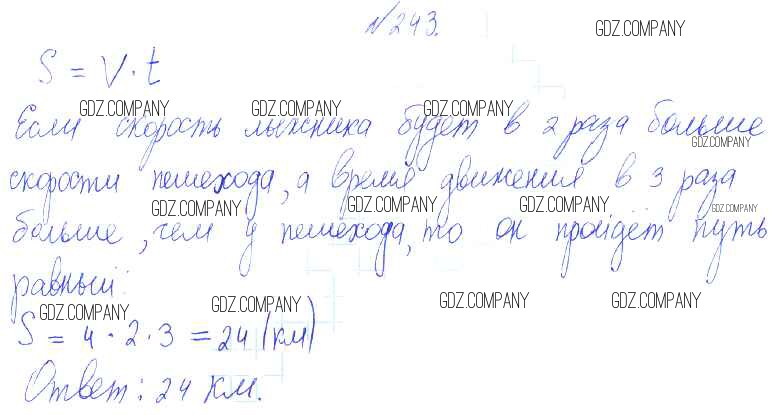 №243.
GDZ.COMPANY
S = V · t
GDZ.COMPANY GDZ.COMPANY GDZ.COMPANY
Если скорость лыжника будет в 2 раза больше
GDZ.COMPANY
скорости пешехода, а время движения в 3 раза
GDZ.COMPANY GDZ.COMPANY GDZ.COMPANY GDZ.COMPANY
больше, чем у пешехода, то он пройдёт путь
равный:
GDZ.COMPANY GDZ.COMPANY GDZ.COMPANY GDZ.COMPANY
S = 4 · 2 · 3 = 24 (км)
Ответ: 24 км.